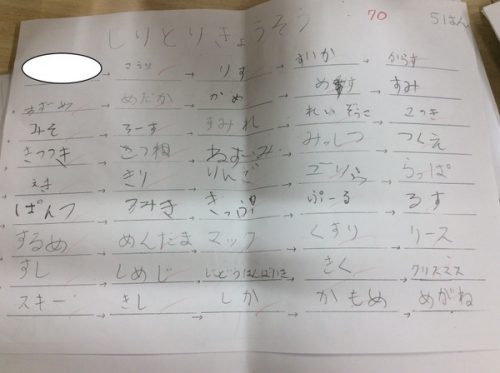 しりとりきょうそう 70 51はん
→ りす → すいか → からす
すずめ → めだか → かめ → めす → すみ
みそ → そーす → すみれ → れいぞうこ → こっき
きつつき → きつね → ねずみ → みっしつ → つくえ
えき → きり → りんご → ごりら → らっぱ
ぱんつ → つみき → きっぷ → ぷーる → るす
するめ → めんだま → マック → くすり → リース
すし → しめじ → じどうはんばいき → きく → クリスマス
スキー → きし → しか → かもめ → めがね